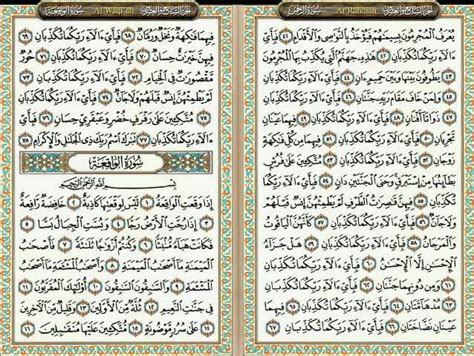 الجزء السابع والعشرون
Ar-Rahman
سورة الرحمن
يُعْرَفُ الْمُجْرِمُونَ بِسِيمَٰهُمْ فَيُؤْخَذُ بِالنَّوَٰصِي وَالْأَقْدَامِ ٤١
فَبِأَيِّ ءَالَآءِ رَبِّكُمَا تُكَذِّبَانِ ٤٢ هَٰذِهِ جَهَنَّمُ الَّتِي يُكَذِّبُ بِهَا الْمُجْرِمُونَ ٤٣
يَطُوفُونَ بَيْنَهَا وَبَيْنَ حَمِيمٍ ءَانٍ ٤٤ فَبِأَيِّ ءَالَآءِ رَبِّكُمَا تُكَذِّبَانِ ٤٥
وَلِمَنْ خَافَ مَقَامَ رَبِّهِ جَنَّتَانِ ٤٦ فَبِأَيِّ ءَالَآءِ رَبِّكُمَا تُكَذِّبَانِ ٤٧
ذَوَاتَآ أَفْنَانٍ ٤٨ فَبِأَيِّ ءَالَآءِ رَبِّكُمَا تُكَذِّبَانِ ٤٩ فِيهِمَا عَيْنَانِ
تَجْرِيَانِ ٥٠ فَبِأَيِّ ءَالَآءِ رَبِّكُمَا تُكَذِّبَانِ ٥١ فِيهِمَا مِن كُلِّ فَٰكِهَةٍ
زَوْجَانِ ٥٢ فَبِأَيِّ ءَالَآءِ رَبِّكُمَا تُكَذِّبَانِ ٥٣ مُتَّكِئِينَ عَلَىٰ فُرُشٍ
بَطَآئِنُهَا مِنْ إِسْتَبْرَقٍ وَجَنَى الْجَنَّتَيْنِ دَانٍ ٥٤ فَبِأَيِّ ءَالَآءِ رَبِّكُمَا
تُكَذِّبَانِ ٥٥ فِيهِنَّ قَٰصِرَٰتُ الطَّرْفِ لَمْ يَطْمِثْهُنَّ إِنسٌ قَبْلَهُمْ
وَلَا جَآنٌّ ٥٦ فَبِأَيِّ ءَالَآءِ رَبِّكُمَا تُكَذِّبَانِ ٥٧ كَأَنَّهُنَّ الْيَاقُوتُ
وَالْمَرْجَانُ ٥٨ فَبِأَيِّ ءَالَآءِ رَبِّكُمَا تُكَذِّبَانِ ٥٩ هَلْ جَزَآءُ
الْإِحْسَٰنِ إِلَّا الْإِحْسَٰنُ ٦٠ فَبِأَيِّ ءَالَآءِ رَبِّكُمَا تُكَذِّبَانِ ٦١
وَمِن دُونِهِمَا جَنَّتَانِ ٦٢ فَبِأَيِّ ءَالَآءِ رَبِّكُمَا تُكَذِّبَانِ ٦٣
مُدْهَآمَّتَانِ ٦٤ فَبِأَيِّ ءَالَآءِ رَبِّكُمَا تُكَذِّبَانِ ٦٥ فِيهِمَا
عَيْنَانِ نَضَّاخَتَانِ ٦٦ فَبِأَيِّ ءَالَآءِ رَبِّكُمَا تُكَذِّبَانِ ٦٧
الجزء السابع والعشرون
Al-Waqi'ah
سورة الواقعة
فِيهِمَا فَٰكِهَةٌ وَنَخْلٌ وَرُمَّانٌ ٦٨ فَبِأَيِّ ءَالَآءِ رَبِّكُمَا تُكَذِّبَانِ ٦٩
فِيهِنَّ خَيْرَٰتٌ حِسَانٌ ٧٠ فَبِأَيِّ ءَالَآءِ رَبِّكُمَا تُكَذِّبَانِ ٧١ حُورٌ
مَّقْصُورَٰتٌ فِي الْخِيَامِ ٧٢ فَبِأَيِّ ءَالَآءِ رَبِّكُمَا تُكَذِّبَانِ ٧٣
لَمْ يَطْمِثْهُنَّ إِنسٌ قَبْلَهُمْ وَلَا جَآنٌّ ٧٤ فَبِأَيِّ ءَالَآءِ رَبِّكُمَا تُكَذِّبَانِ ٧٥
مُتَّكِئِينَ عَلَىٰ رَفْرَفٍ خُضْرٍ وَعَبْقَرِيٍّ حِسَانٍ ٧٦ فَبِأَيِّ
ءَالَآءِ رَبِّكُمَا تُكَذِّبَانِ ٧٧ تَبَٰرَكَ اسْمُ رَبِّكَ ذِي الْجَلَٰلِ وَالْإِكْرَامِ ٧٨
سُورَةُ الْوَاقِعَةِ
بِسْمِ اللَّهِ الرَّحْمَٰنِ الرَّحِيمِ
إِذَا وَقَعَتِ الْوَاقِعَةُ ١ لَيْسَ لِوَقْعَتِهَا كَاذِبَةٌ ٢ خَافِضَةٌ رَّافِعَةٌ
٣ إِذَا رُجَّتِ الْأَرْضُ رَجًّا ٤ وَبُسَّتِ الْجِبَالُ بَسًّا ٥
فَكَانَتْ هَبَآءً مُّنبَثًّا ٦ وَكُنتُمْ أَزْوَٰجًا ثَلَٰثَةً ٧ فَأَصْحَٰبُ
الْمَيْمَنَةِ مَآ أَصْحَٰبُ الْمَيْمَنَةِ ٨ وَأَصْحَٰبُ الْمَشْـَٔمَةِ مَآ أَصْحَٰبُ
الْمَشْـَٔمَةِ ٩ وَالسَّٰبِقُونَ السَّٰبِقُونَ ١٠ أُولَٰٓئِكَ الْمُقَرَّبُونَ ١١
فِي جَنَّٰتِ النَّعِيمِ ١٢ ثُلَّةٌ مِّنَ الْأَوَّلِينَ ١٣ وَقَلِيلٌ مِّنَ الْآخِرِينَ
١٤ عَلَىٰ سُرُرٍ مَّوْضُونَةٍ ١٥ مُّتَّكِئِينَ عَلَيْهَا مُتَقَٰبِلِينَ ١٦